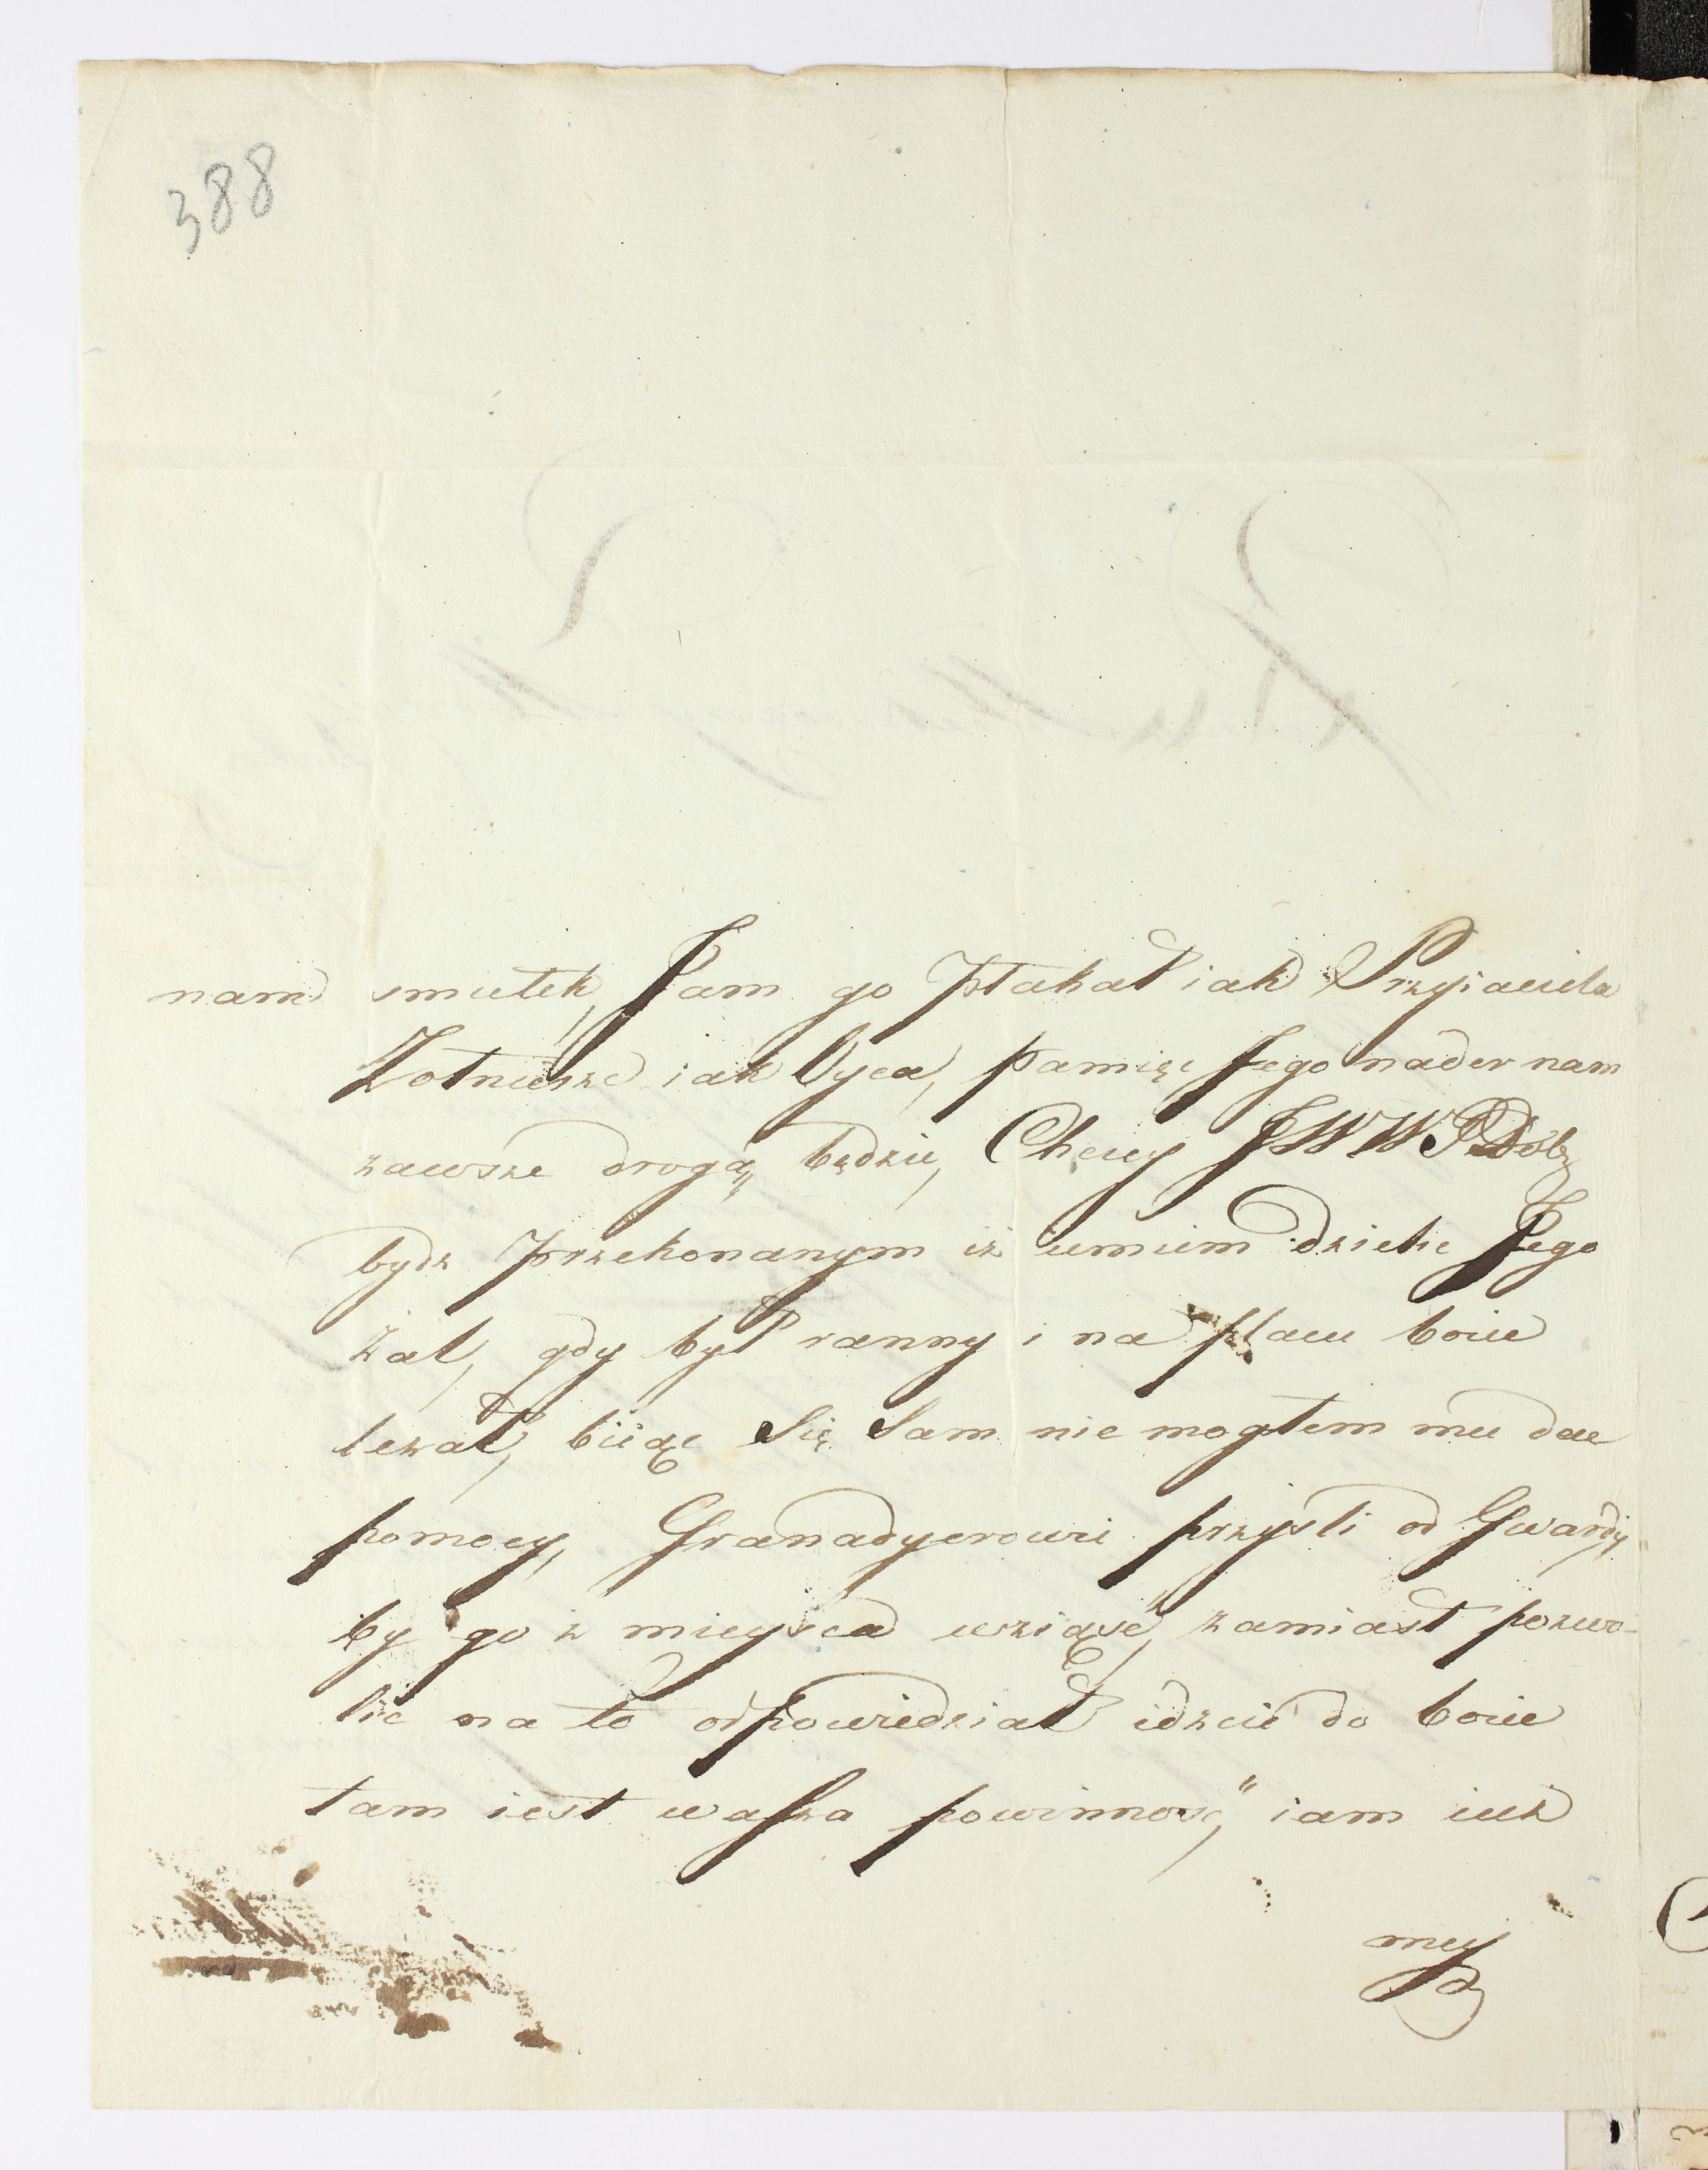 388
nam smutek, Jam go płakał iak Przyiaciela
Żołnierze iak Oyca, pamięc Jego nader nam
zawsze drogą będzie, Chciey JWWPDobr
bydz przekonanym iż umiem dzielic Jego
żal, gdy był ranny i na placu boiu
leżał, biiąc Się Sam nie mogłem mu dac
pomocy, Granadyerowie przyszli od Gwardy
by go z mieysca wziąść, zamiast pozwo-
lic na to odpowiedział idzcie do boiu
tam iest wasza powinnosc," iam iuż
mey